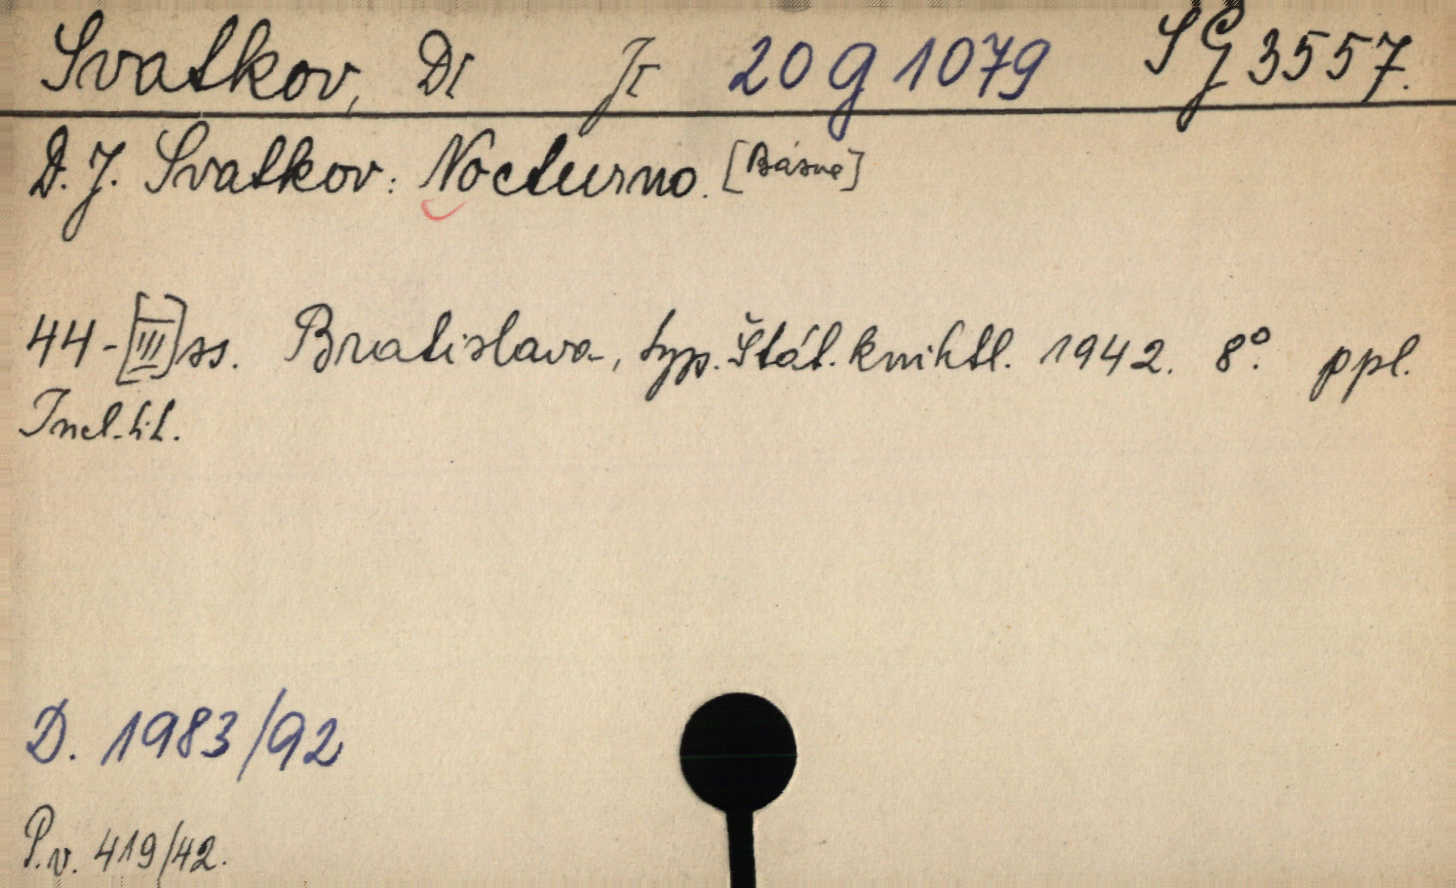 Svatkov, D. J. 20 G 1079 SG 3557.
D. J. Svatkov: Nocturno. [Básne]
44-[III] ss. Bratislava, typ. Štát. knihtl. 1942. 8°. ppl.
Incl. tit.
D. 1983/92
P.v. 419/42.